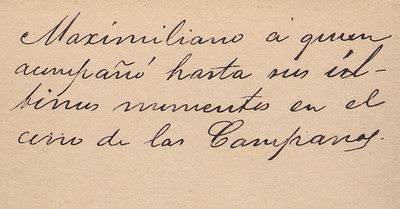 Maximiliano á quien
acompañó hasta sus úl-
timos momentos en el
cerro de las Campanas.